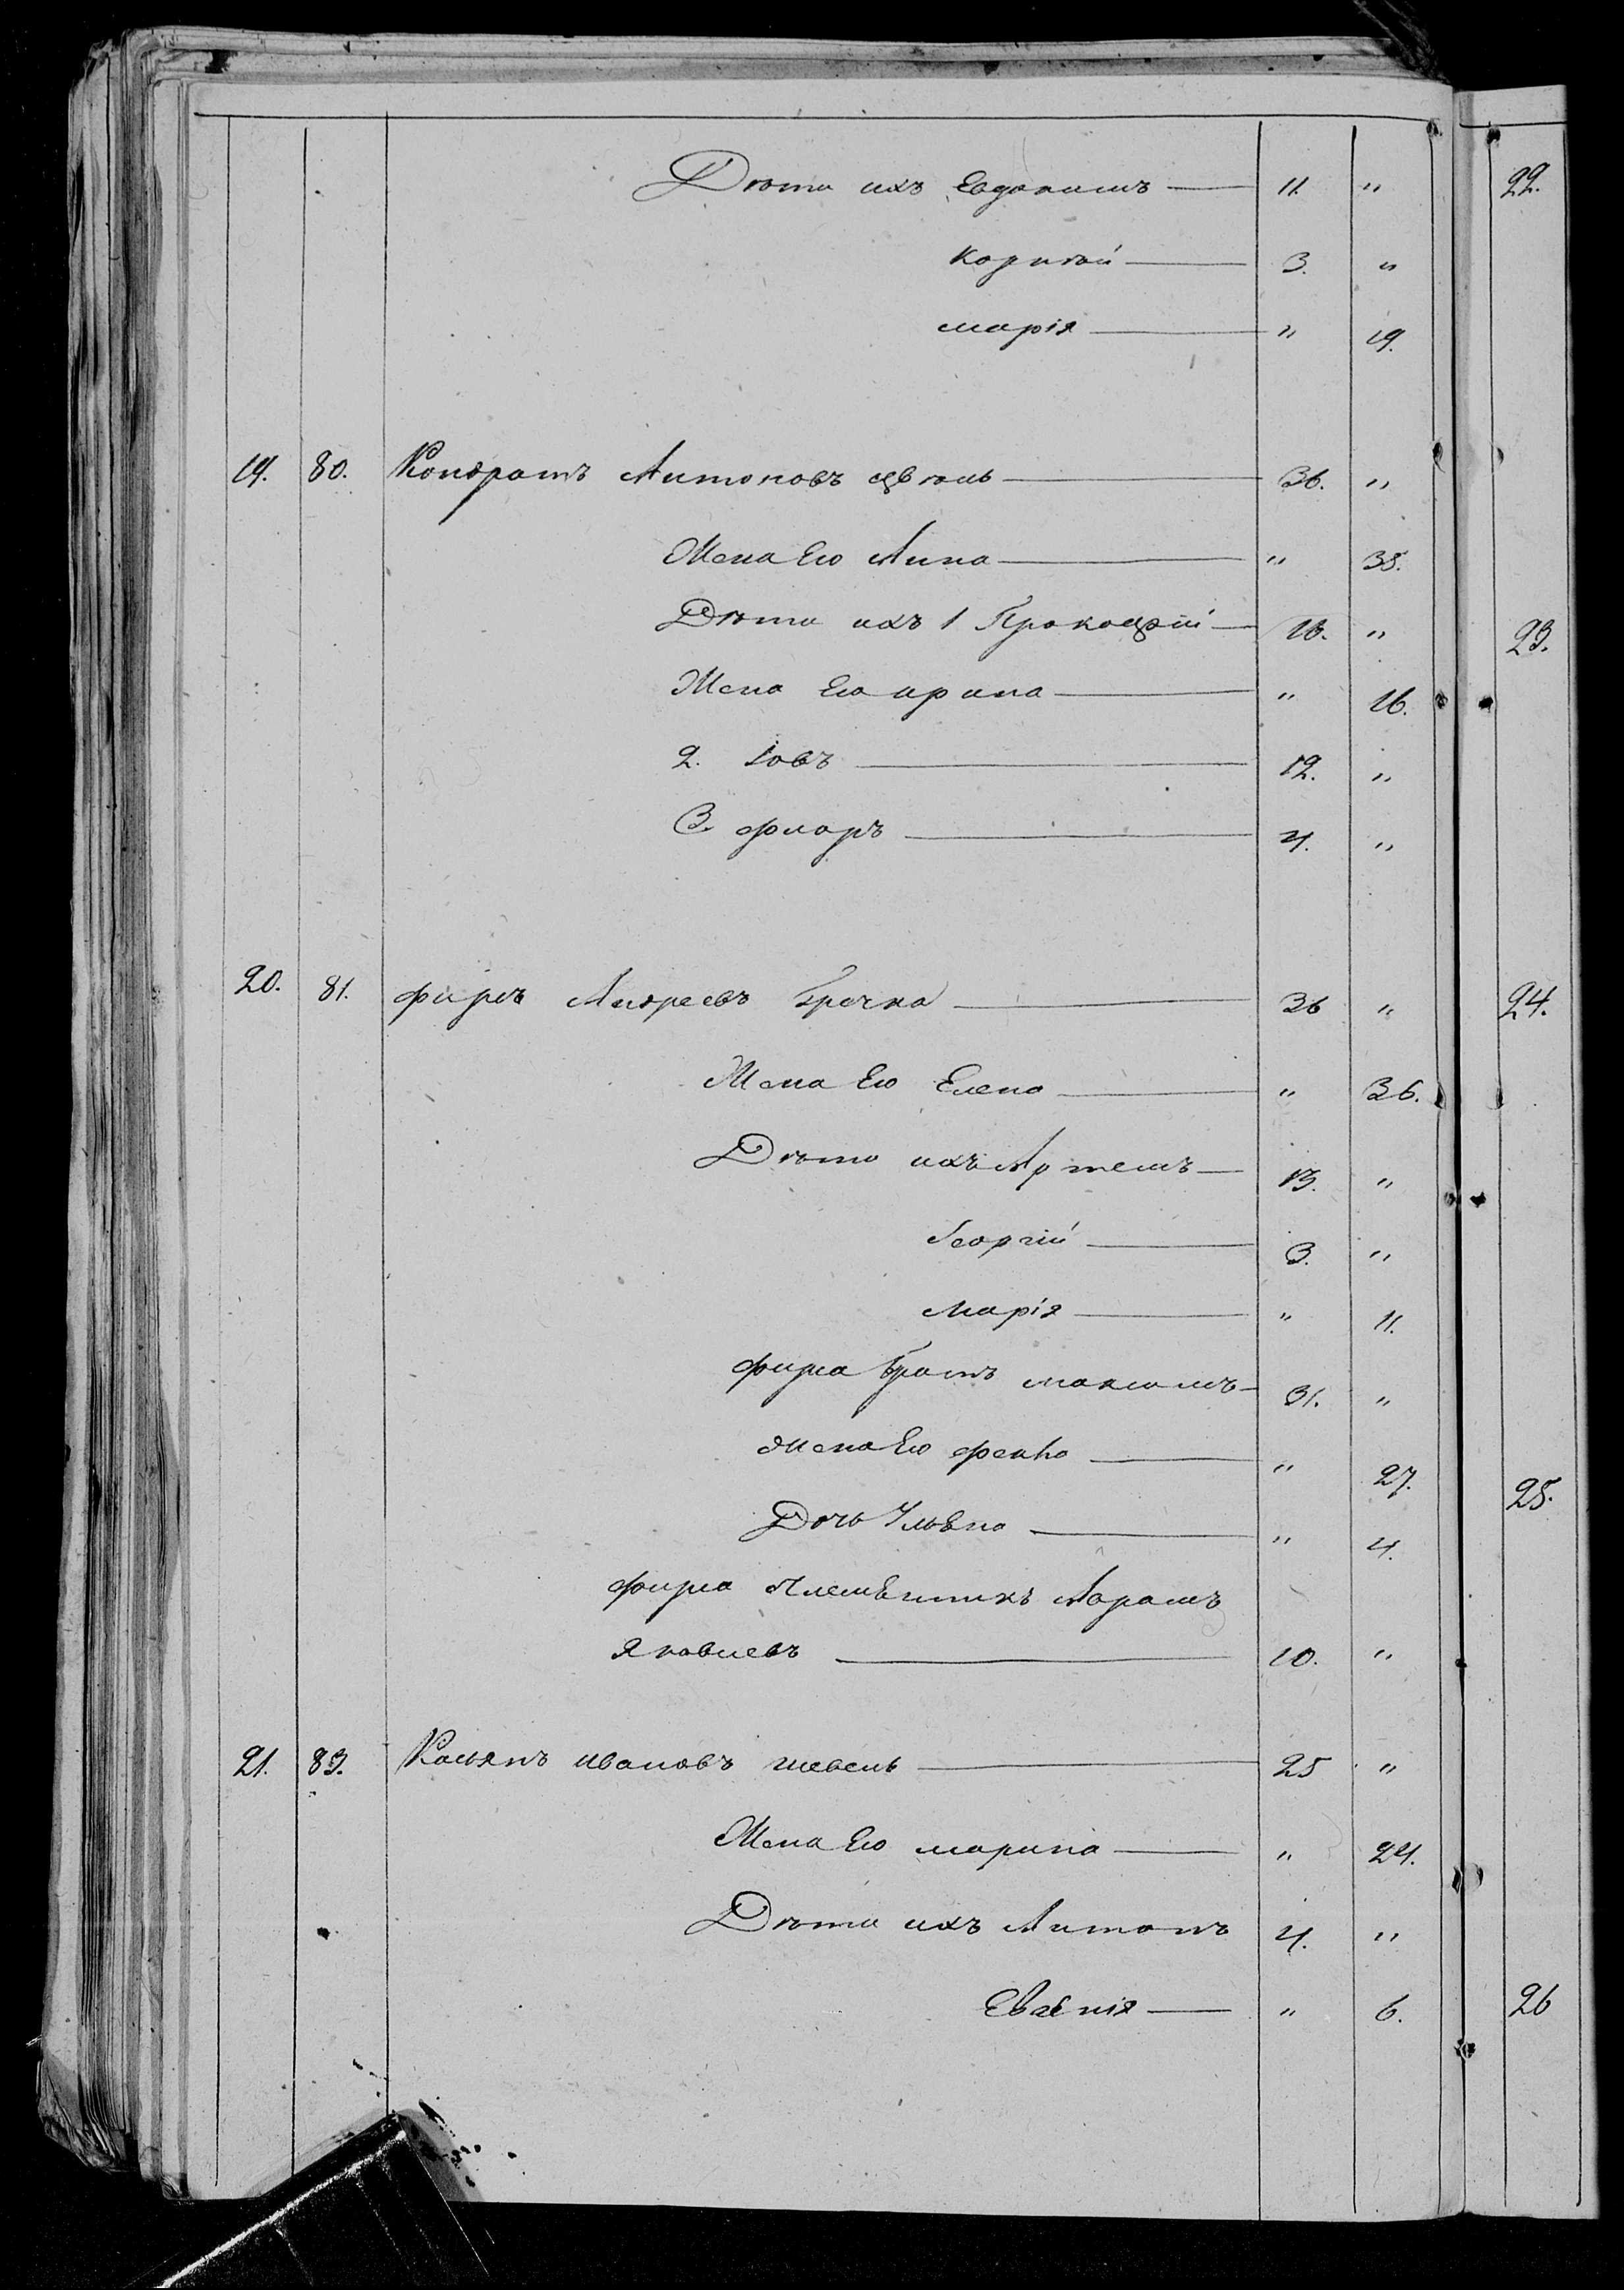 Дѣти ихъ Евдокимъ — 11. "
Корнѣй — 3. "
Марія — " 19.
19. 80. Кондратъ Антоновъ — 36. "
Жена Его Анна — " 35.
Дѣти ихъ 1 Прокофій — 18. "
Жена Его Ирина — " 16.
2. Іовъ — 12. "
3. Флоръ — 4. "
20. 81. Фирсъ Андреевъ Гречка — 36 "
Жена Его Елена — " 36.
Дѣти ихъ Артемъ — 13. "
Георгій — 3. "
Марія — " 11.
Фирса Братъ Максимъ — 31. "
Жена Его — " 27.
Дочь — " 4.
Фирса Племѣнникъ
Яковлевъ — 10. "
21. 83. Касьянъ Ивановъ — 25 "
Жена Его Марина — " 24.
Дѣти ихъ Антонъ 4. "
— " 6.
22.
23.
24.
25.
26